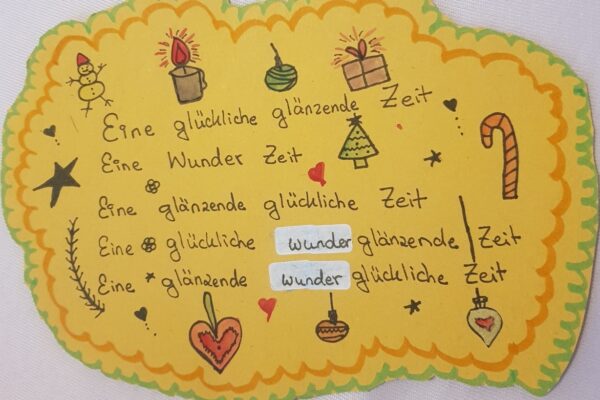 Eine glückliche glänzende Zeit
Eine Wunder Zeit
Eine glänzende glückliche Zeit
Eine glückliche wunder glänzende Zeit
Eine glänzende wunder glückliche Zeit